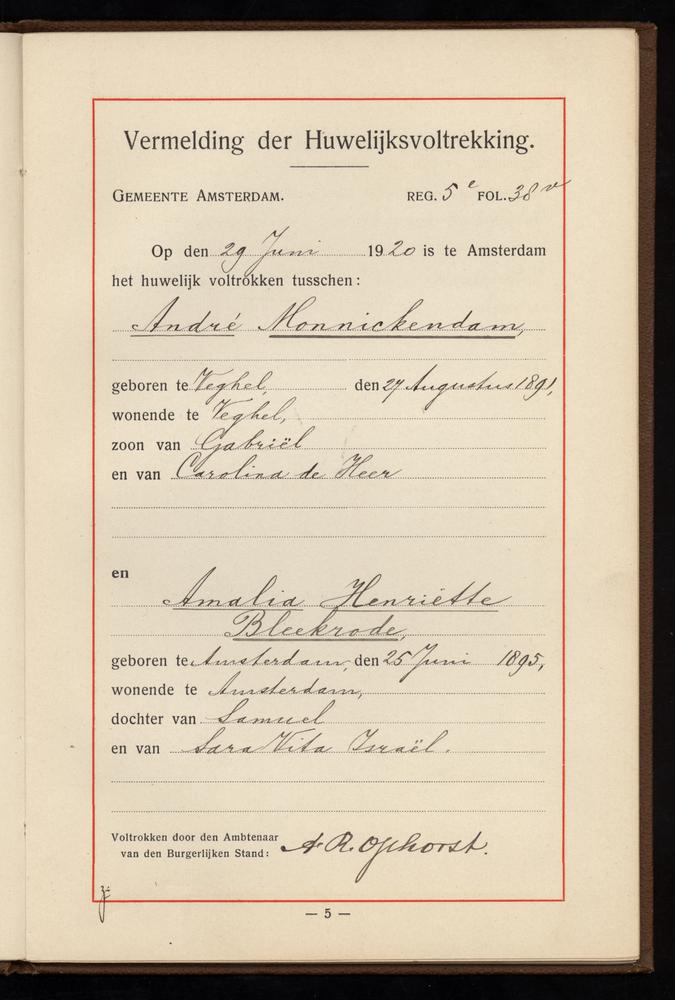 Vermelding der Huwelijksvoltrekking.
GEMEENTE AMSTERDAM. REG. 5e FOL. 38v
Op den 29 Juni 1920 is te Amsterdam
het huwelijk voltrokken tusschen:
André Monnickendam,
geboren te Veghel, den 27 Augustus 1891,
wonende te Veghel,
zoon van Gabriël
en van Carolina de Heer
en
Amalia Henriëtte
Bleekrode,
geboren te Amsterdam, den 25 Juni 1895,
wonende te Amsterdam,
dochter van Samuel
en van Sara Vita Israël.
Voltrokken door den Ambtenaar
van den Burgerlijken Stand: A. R. Ophorst.
— 5 —